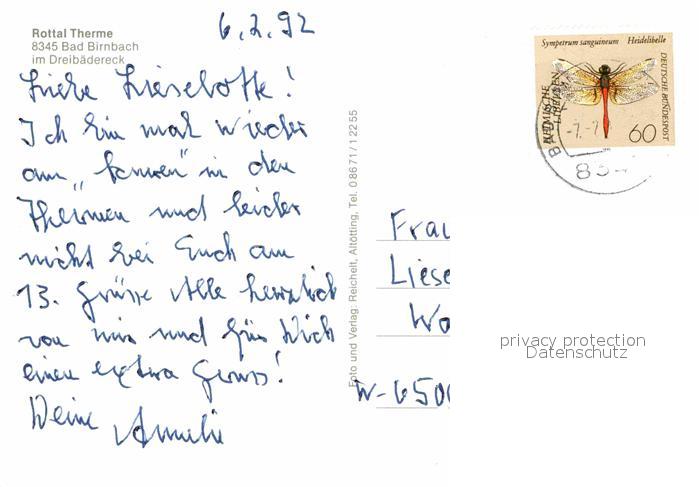 Rottal Therme
8345 Bad Birnbach
im Dreibädereck
6.2.92
Liebe Lieselotte!
Ich bin mal wieder
am „ in den
Thermen und leider
nicht bei Euch am
13. Grüsse Alle herzlich
von mir und für Dich
einen extra Gruss!
Deine Amelie
Foto und Verlag: Reichelt, Altötting, Tel. 08671/12255
Sympetrum sanguineum Heidelibelle
DEUTSCHE BUNDESPOST
HEIMISCHE
LIBELLEN
60
Frau
Liese
Wo
W-650
privacy protection
Datenschutz